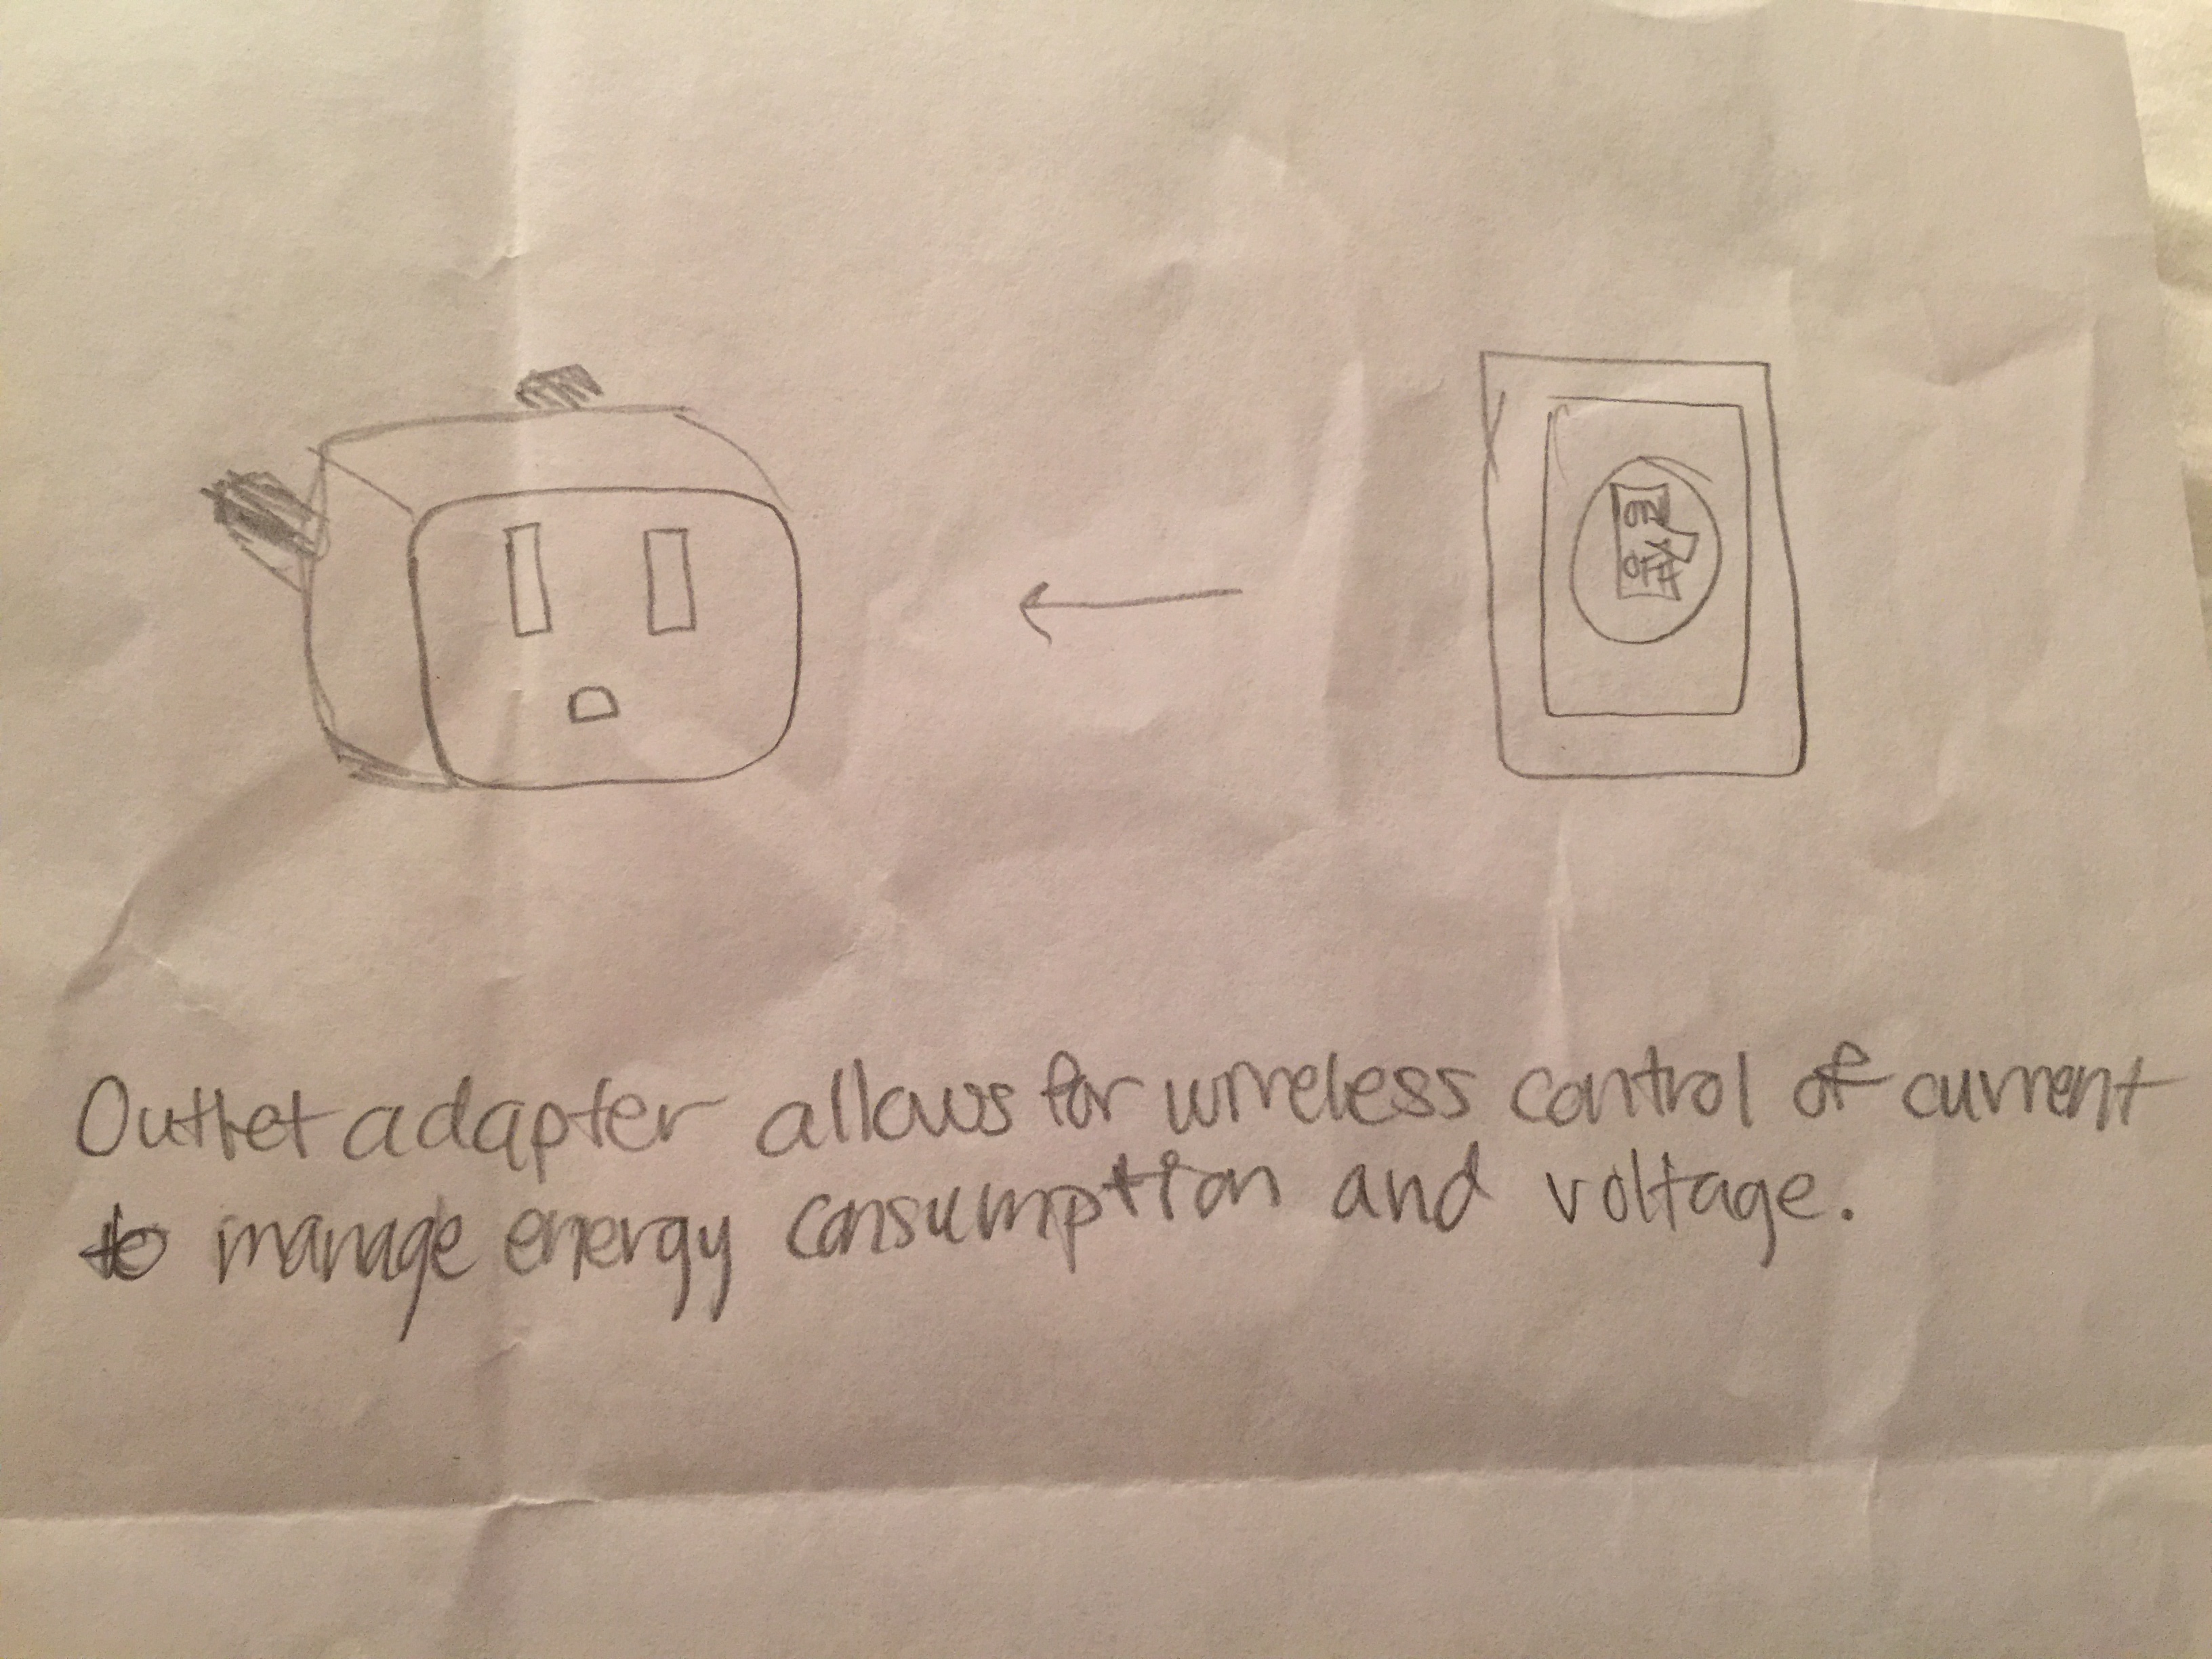 Outlet adapter allows for wireless control of current
to manage energy consumption and voltage.